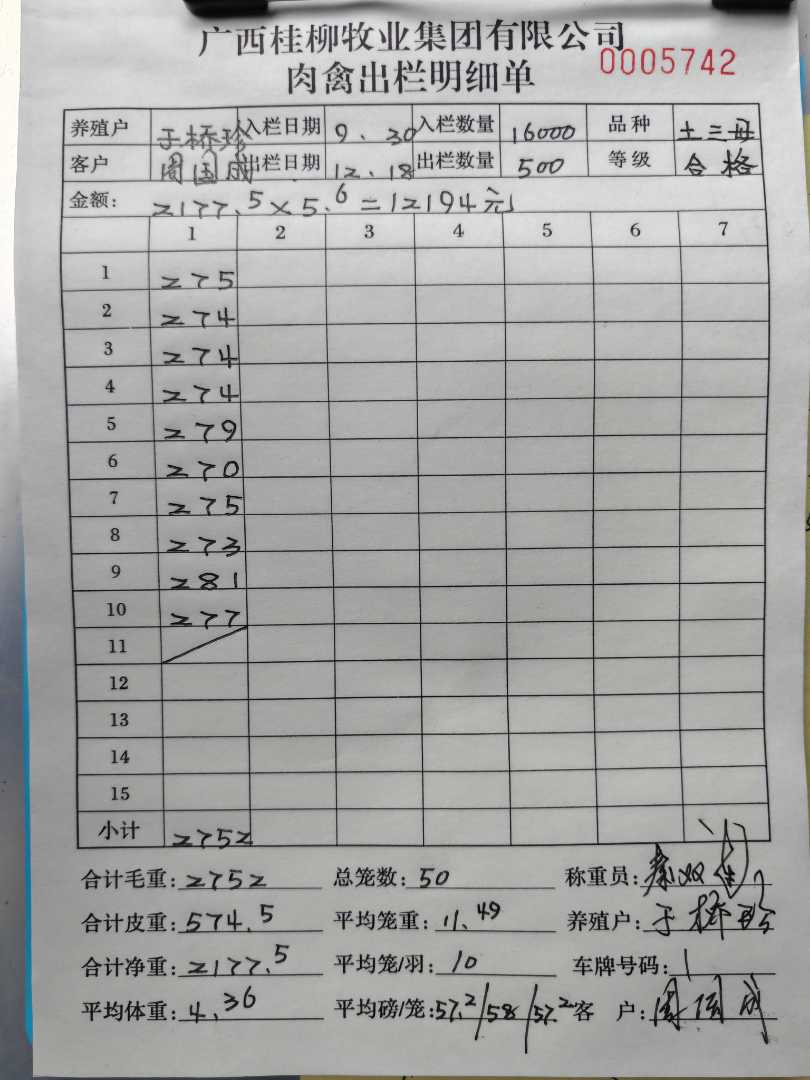 广西桂柳牧业集团有限公司
肉禽出栏明细单 0005742
养殖户 于桥珍 入栏日期 9、30 入栏数量 16000 品种 土三母
客户 周国成 出栏日期 12、18 出栏数量 500 等级 合格
金额: 2177.5×5.6=12194元
1 2 3 4 5 6 7
1 275
2 274
3 274
4 274
5 279
6 270
7 275
8 273
9 281
10 277
11
12
13
14
15
小计 2752
合计毛重: 2752 总笼数: 50 称重员:
合计皮重: 574.5 平均笼重: 11.49 养殖户: 于桥珍
合计净重: 2177.5 平均笼/羽: 10 车牌号码: 1
平均体重: 4.36 平均磅/笼: 57.2/58/57.2 客 户: 周国成